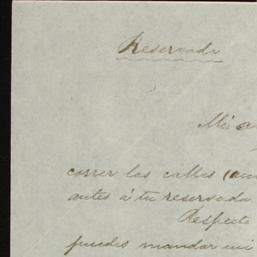 Reservada
Mi a
correr las calles (aun
antes á tu reservada
Respecto
puedes mandar mi